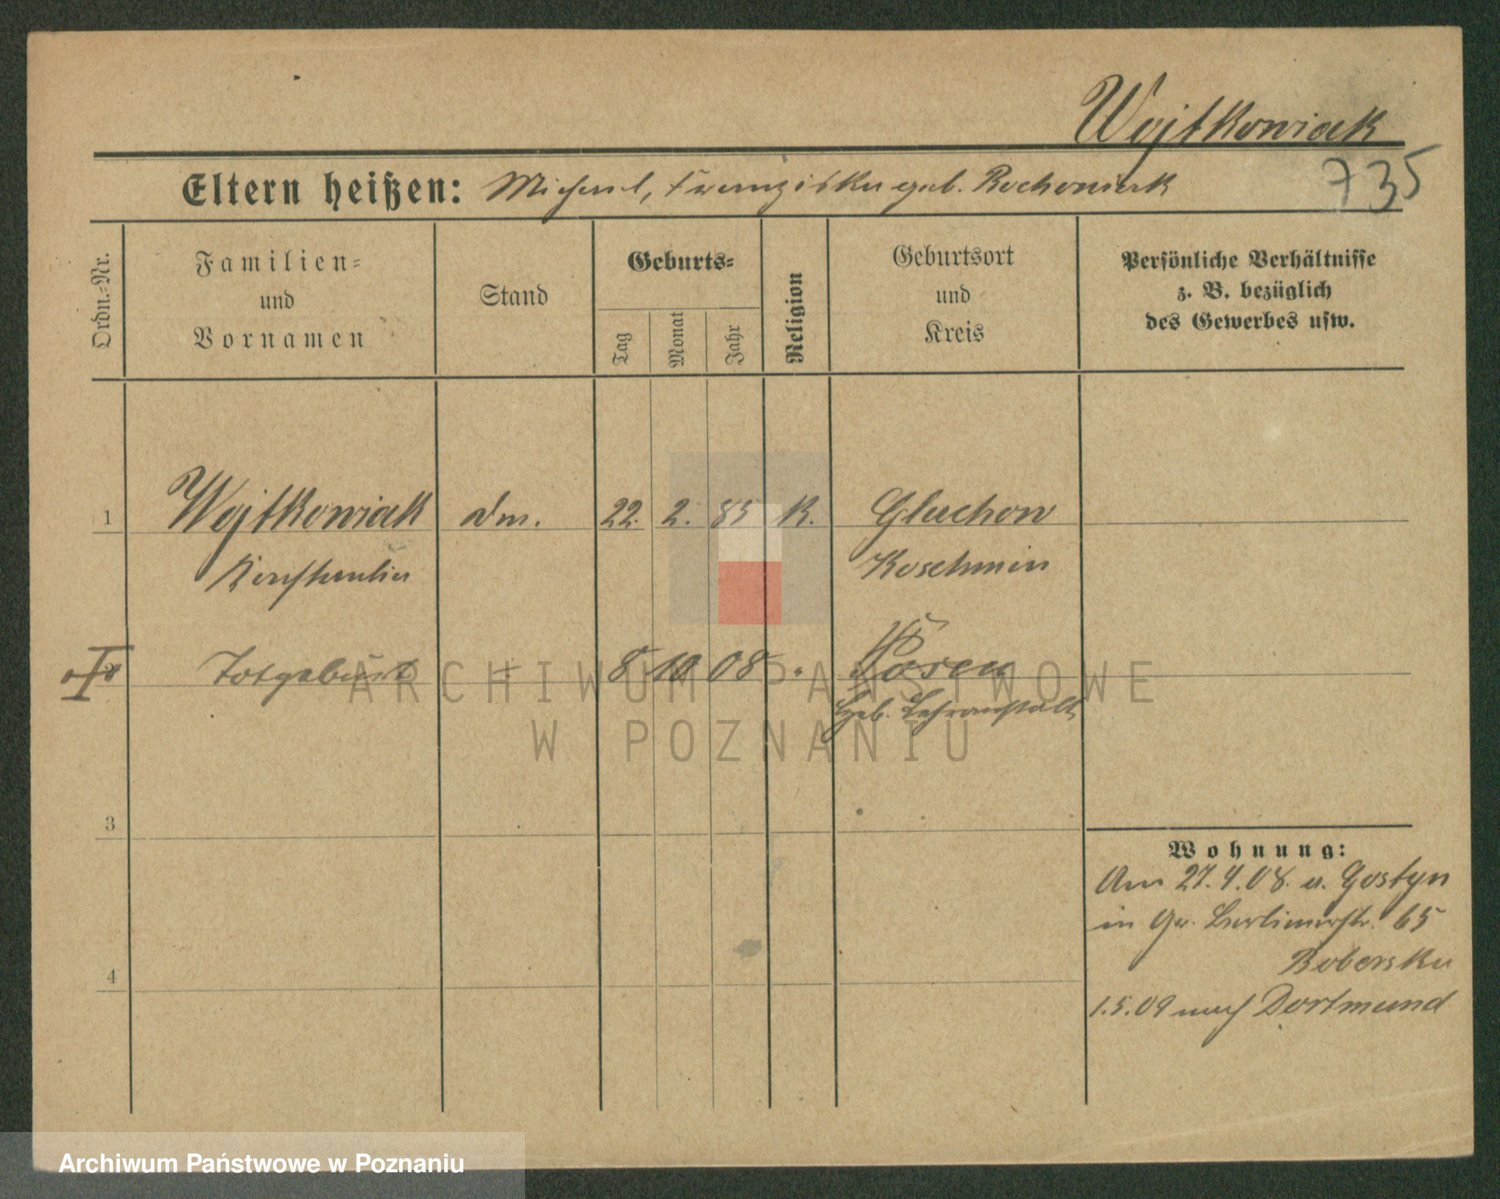 Wojtkowiak
735
Eltern heißen: Michael, Franziska geb. Rochowiak
Ordn.=Nr.
Familien=
und
Vornamen
Stand
Geburts=
Tag
Monat
Jahr
Religion
Geburtsort
und
Kreis
Persönliche Verhältnisse
z. B. bezüglich
des Gewerbes usw.
1 Wojtkowiak 22. 2. 85 K. Gluchow
Konstantin Koschmin
2 Totgeburt + 8 10 08 " Posen
Geb. Lehranstalt
3
4
Wohnung:
Am 27.4.08. v. Gostyn
in Gr. Berlinerstr. 65
1.5.09 nach Dortmund
ARCHIWUM PAŃSTWOWE
W POZNANIU
Archiwum Państwowe w Poznaniu